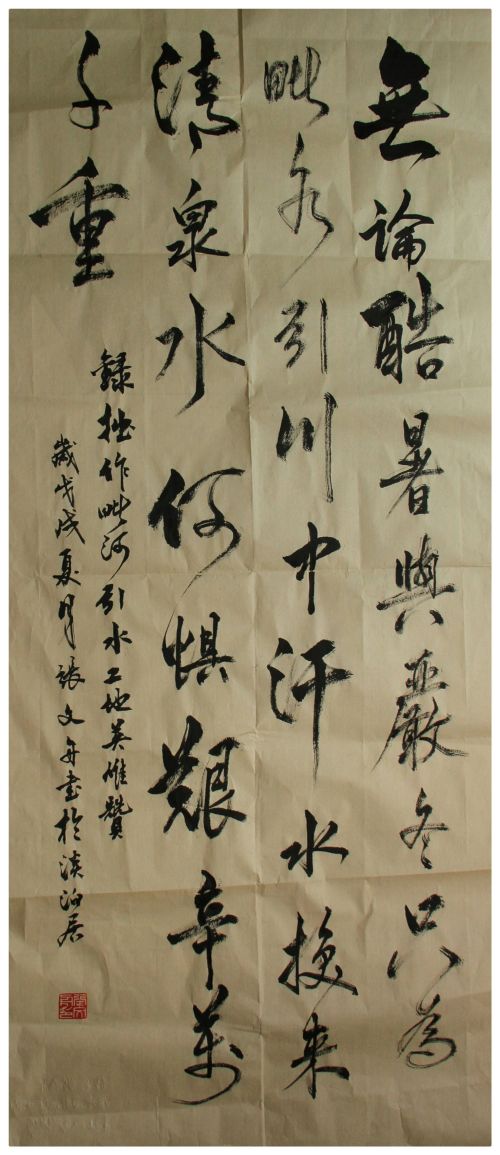 無論酷暑與嚴冬只為
毗水引川中汗水换来
清泉水何惧艱辛萬
千重
録拙作毗河引水工地英雄贊
歲戊戌夏月張文舟書於淡泊居